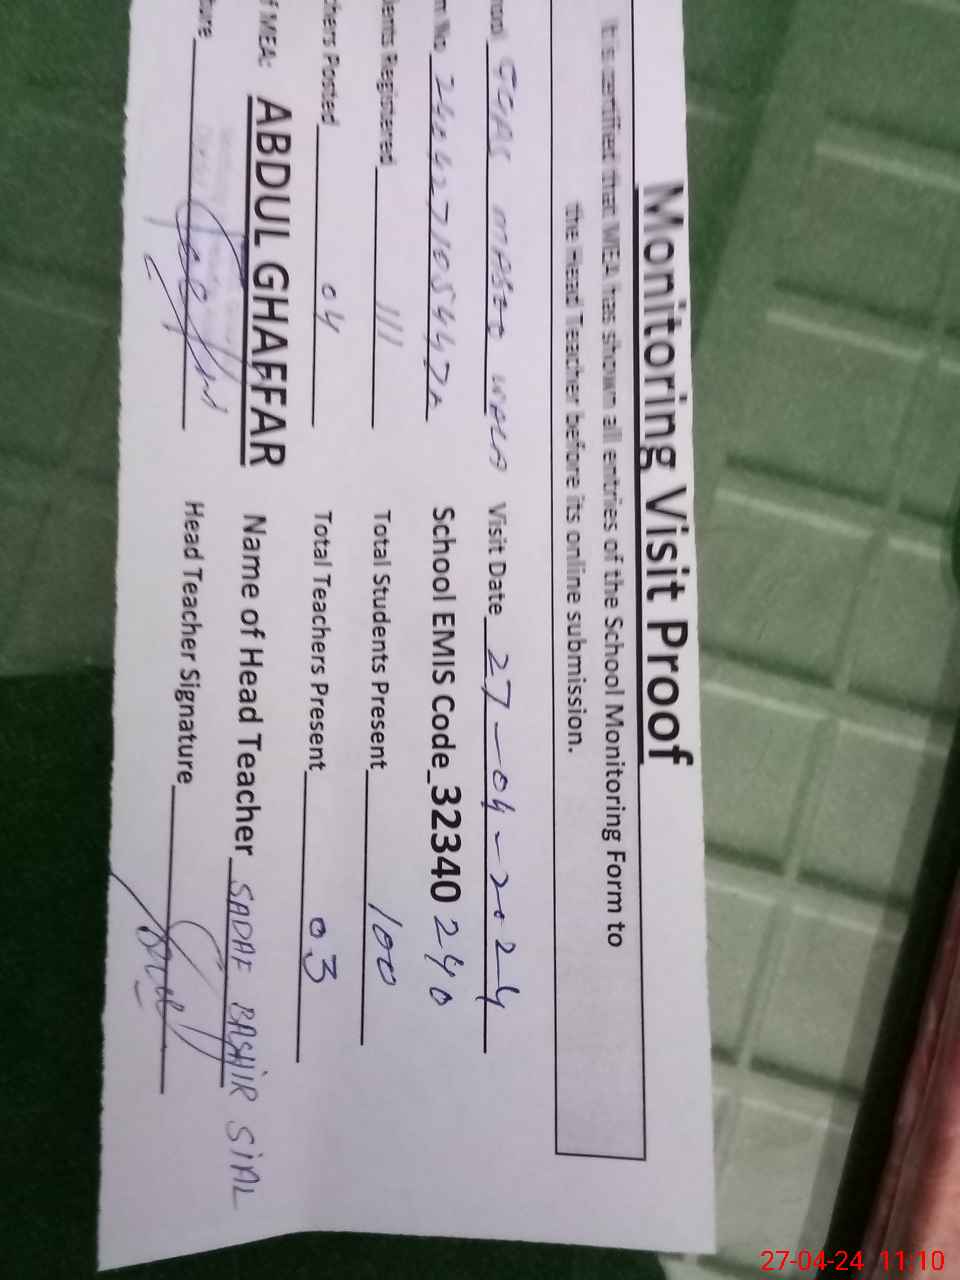 Monitoring Visit Proof
It is certified that MEA has shown all entries of the School Monitoring Form to
the Head Teacher before its online submission.
Visit Date 27-04-2024
School EMIS Code_32340 240
ents Registered 111 Total Students Present 100
hers Posted 04 Total Teachers Present 03
f MEA: ABDUL GHAFFAR Name of Head Teacher SADAF BASHIR SIAL
Head Teacher Signature
27-04-24 11:10